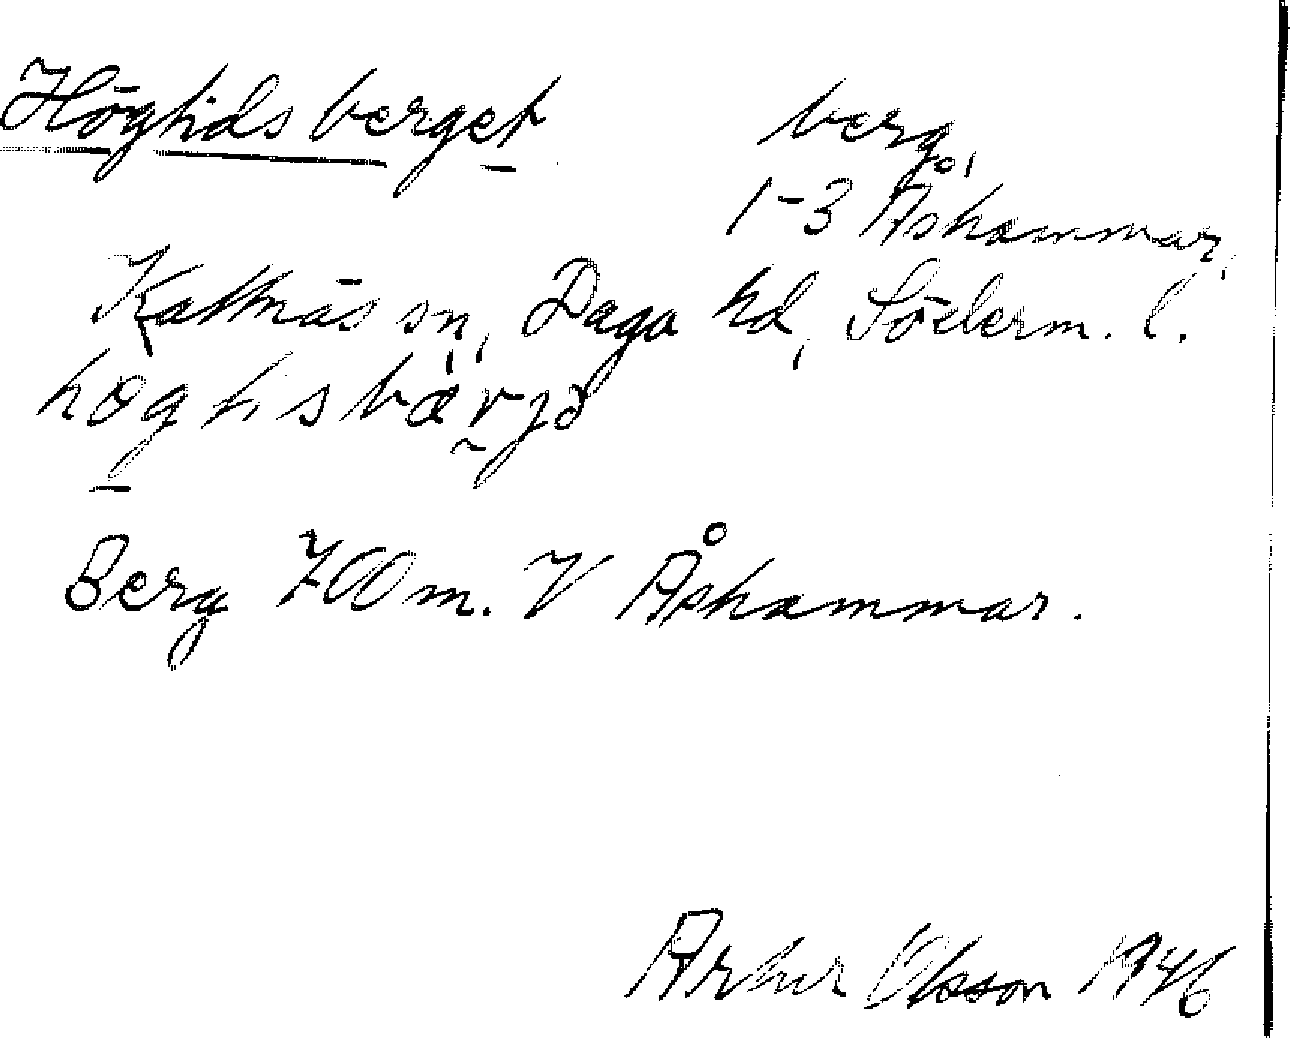 Högtidsberget berg,
1-3 Åshammar,
Kattnäs sn, Daga hd, Söderm. l.
högtisbärjə
Berg 700 m. V Åshammar.
Arthur Olsson 1946